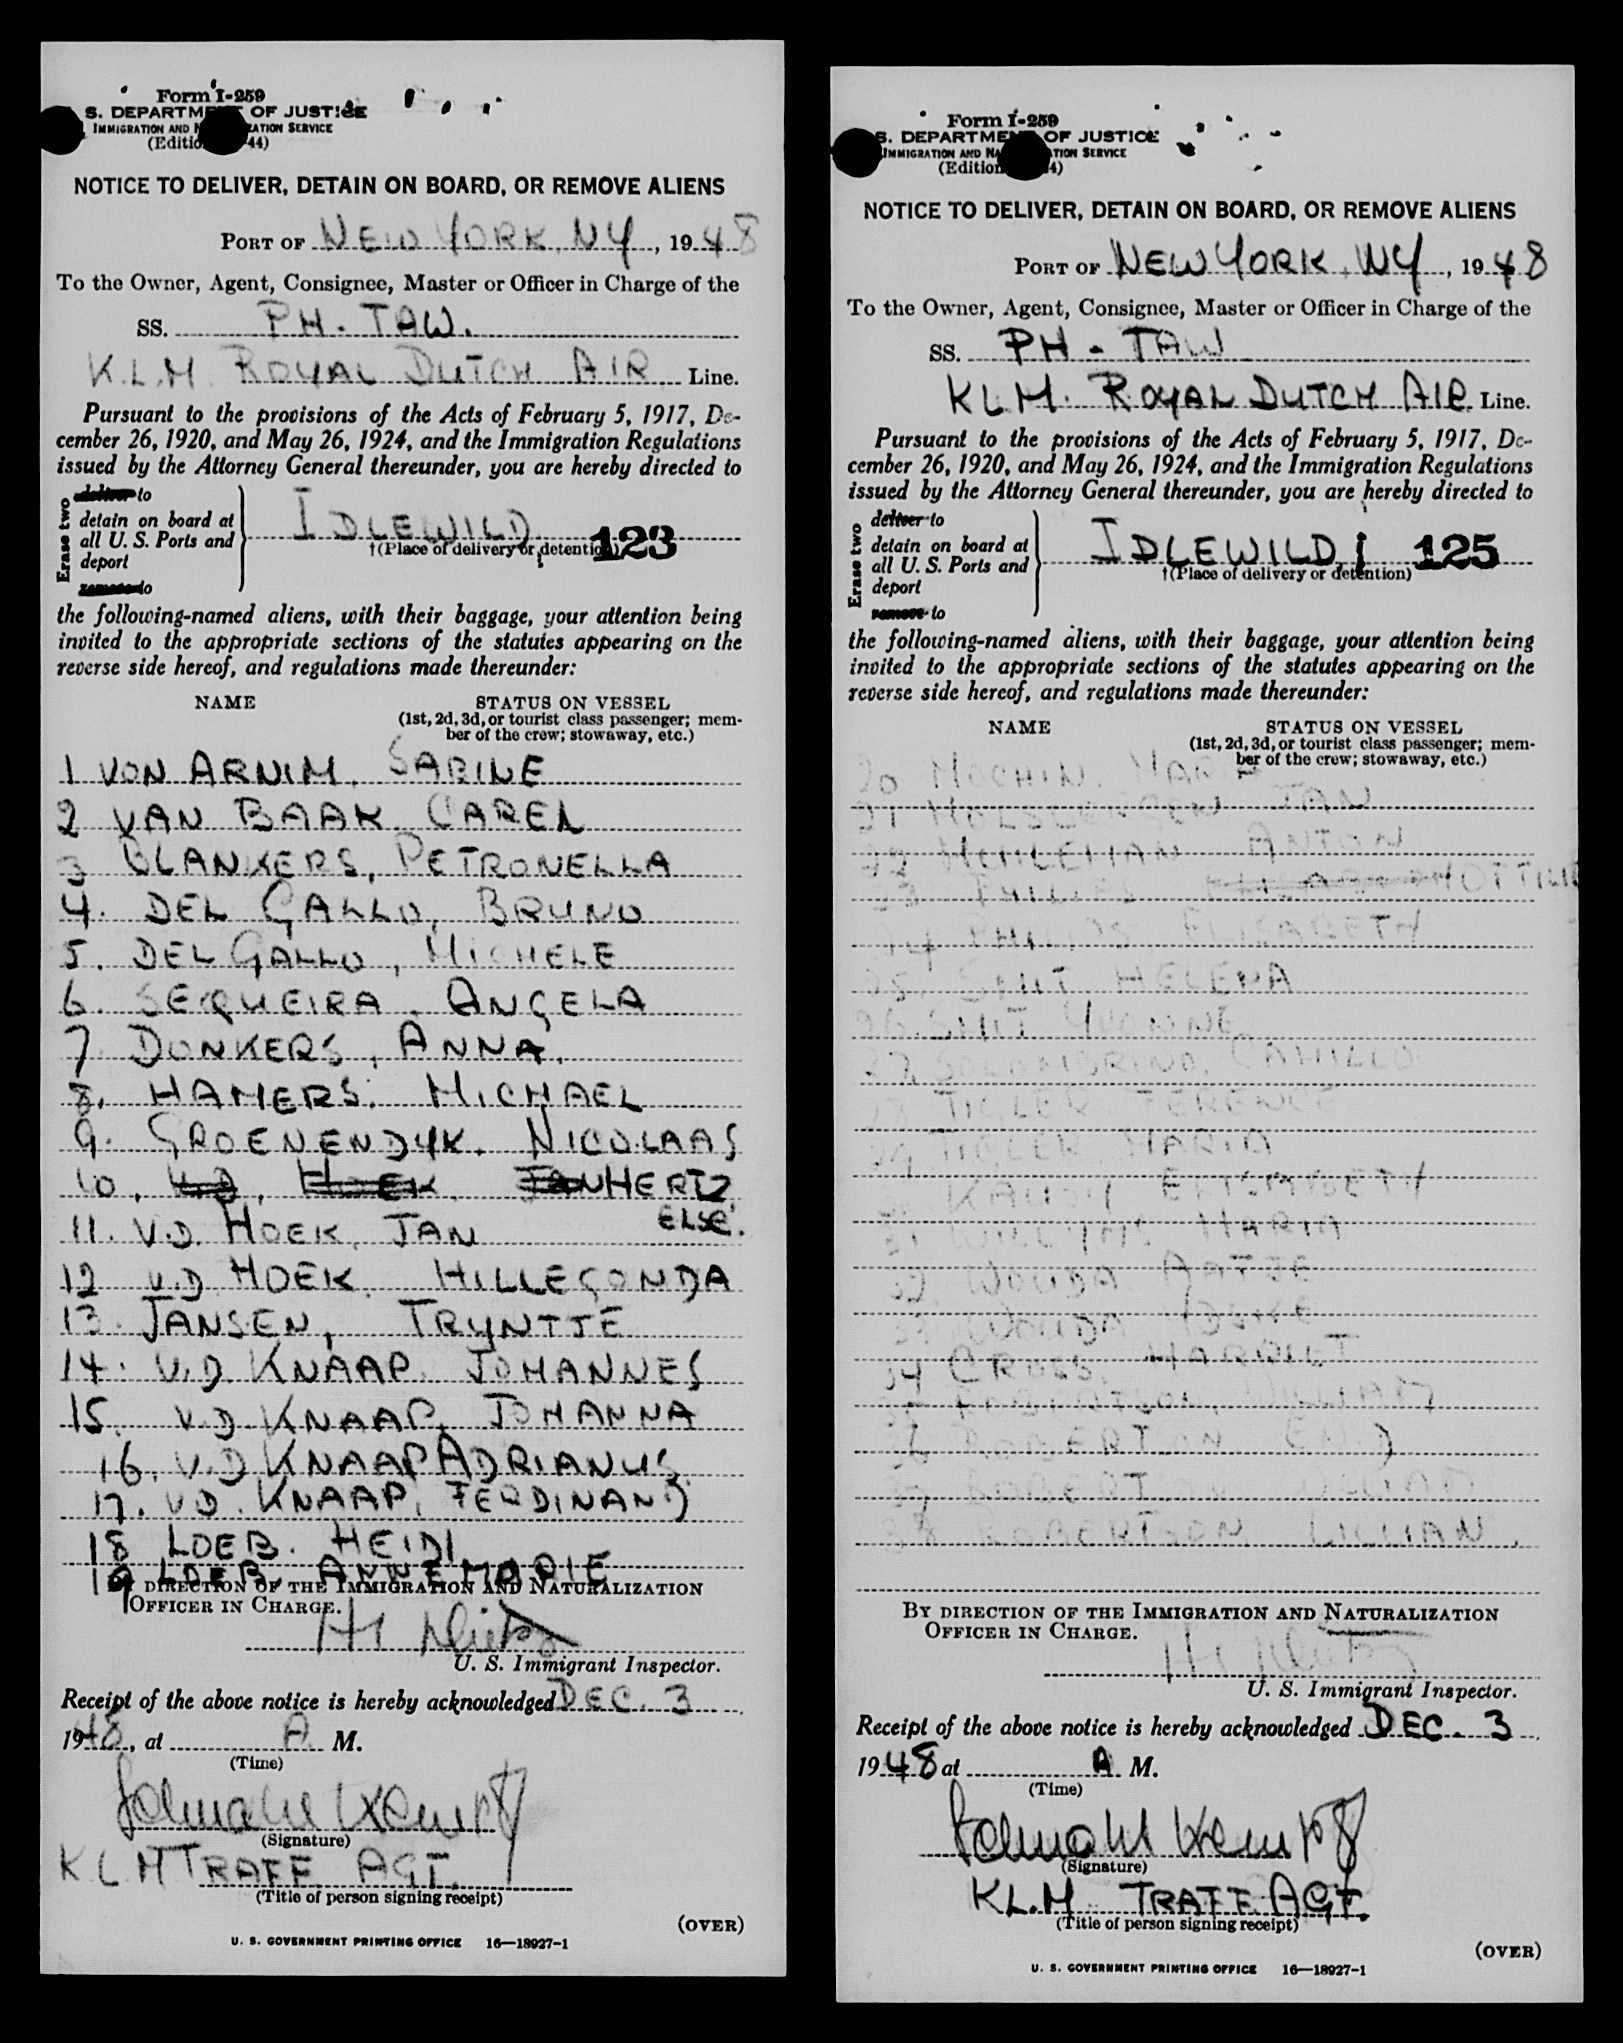 Form I-259
S. DEPARTMENT OF JUSTICE
IMMIGRATION AND NATURALIZATION SERVICE
(Edition 44)
NOTICE TO DELIVER, DETAIN ON BOARD, OR REMOVE ALIENS
PORT OF NEW YORK, NY, 1948
To the Owner, Agent, Consignee, Master or Officer in Charge of the
SS. PH - TAW.
K.L.M. ROYAL DUTCH AIR Line.
Pursuant to the provisions of the Acts of February 5, 1917, De-
cember 26, 1920, and May 26, 1924, and the Immigration Regulations
issued by the Attorney General thereunder, you are hereby directed to
Erase two
deliver to
detain on board at
all U. S. Ports and
deport
remove to
IDLEWILD 123
†(Place of delivery or detention)
the following-named aliens, with their baggage, your attention being
invited to the appropriate sections of the statutes appearing on the
reverse side hereof, and regulations made thereunder:
NAME STATUS ON VESSEL
(1st, 2d, 3d, or tourist class passenger; mem-
ber of the crew; stowaway, etc.)
1 VON ARNIM, SABINE
2 VAN BAAK, CAREL
3 BLANKERS, PETRONELLA
4. DEL GALLO, BRUNO
5. DEL GALLO, MICHELE
6. SEQUEIRA, ANGELA
7 DONKERS, ANNA.
8. HAMERS. MICHAEL
9. GROENENDYK. NICOLAAS
10. V.D. HOEK. JAN HERTZ
ELSE.
11. V.D. HOEK, JAN
12 V.D. HOEK. HILLEGONDA
13. JANSEN, TRYNTJE
14. V.D. KNAAP. JOHANNES
15. V.D. KNAAP, JOHANNA
16. V.D KNAAP ADRIANUS
17. V.D. KNAAP, FERDINAND
18 LOEB. HEIDI
19 LOEB. ANNEMARIE
BY DIRECTION OF THE IMMIGRATION AND NATURALIZATION
OFFICER IN CHARGE.
U. S. Immigrant Inspector.
Receipt of the above notice is hereby acknowledged DEC. 3
1948, at A M.
(Time)
(Signature)
KLM TRAFF. AGT.
(Title of person signing receipt)
(OVER)
U. S. GOVERNMENT PRINTING OFFICE 16—18927-1
Form I-259
S. DEPARTMENT OF JUSTICE
IMMIGRATION AND NATURALIZATION SERVICE
(Edition 4)
NOTICE TO DELIVER, DETAIN ON BOARD, OR REMOVE ALIENS
PORT OF NEW YORK, NY, 1948
To the Owner, Agent, Consignee, Master or Officer in Charge of the
SS. PH - TAW
KLM. ROYAL DUTCH AIR Line.
Pursuant to the provisions of the Acts of February 5, 1917, De-
cember 26, 1920, and May 26, 1924, and the Immigration Regulations
issued by the Attorney General thereunder, you are hereby directed to
Erase two
deliver to
detain on board at
all U. S. Ports and
deport
remove to
IDLEWILD 125
†(Place of delivery or detention)
the following-named aliens, with their baggage, your attention being
invited to the appropriate sections of the statutes appearing on the
reverse side hereof, and regulations made thereunder:
NAME STATUS ON VESSEL
(1st, 2d, 3d, or tourist class passenger; mem-
ber of the crew; stowaway, etc.)
20 MOCHIN. MARIA
21 JAN
22 ANTON
23 PHILIPS
24 PHILIPS ELISABETH
25. SMIT HELENA
26. SMIT YVONNE
27. CAMILLO
28 TIGLER FERENCE
29 TIGLER MARIA
ELISABETH
31 MARIA
32 WOUDA AATJE
33 WOUDA
34 CROSS. HARRIET
35 ROBERTSON, WILLIAM
36 ROBERTSON
37 ROBERTSON
38 ROBERTSON LILLIAN.
BY DIRECTION OF THE IMMIGRATION AND NATURALIZATION
OFFICER IN CHARGE.
U. S. Immigrant Inspector.
Receipt of the above notice is hereby acknowledged DEC. 3
1948 at A M.
(Time)
(Signature)
KL.M TRAFF. AGT.
(Title of person signing receipt)
(OVER)
U. S. GOVERNMENT PRINTING OFFICE 16—18927-1